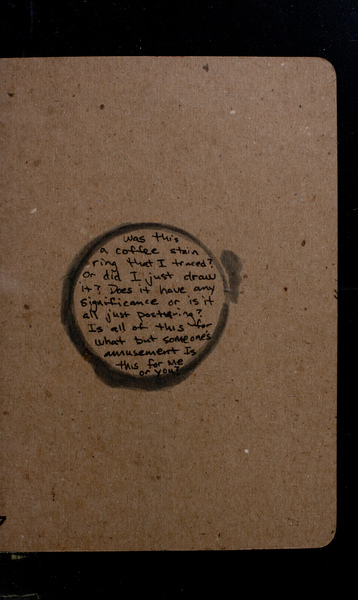 was this
a coffee stain
ring that I traced?
Or did I just draw
it? Does it have any
significance or is it
all just posturing?
Is all of this for
what but someone's
amusement Is
this for me
or you?